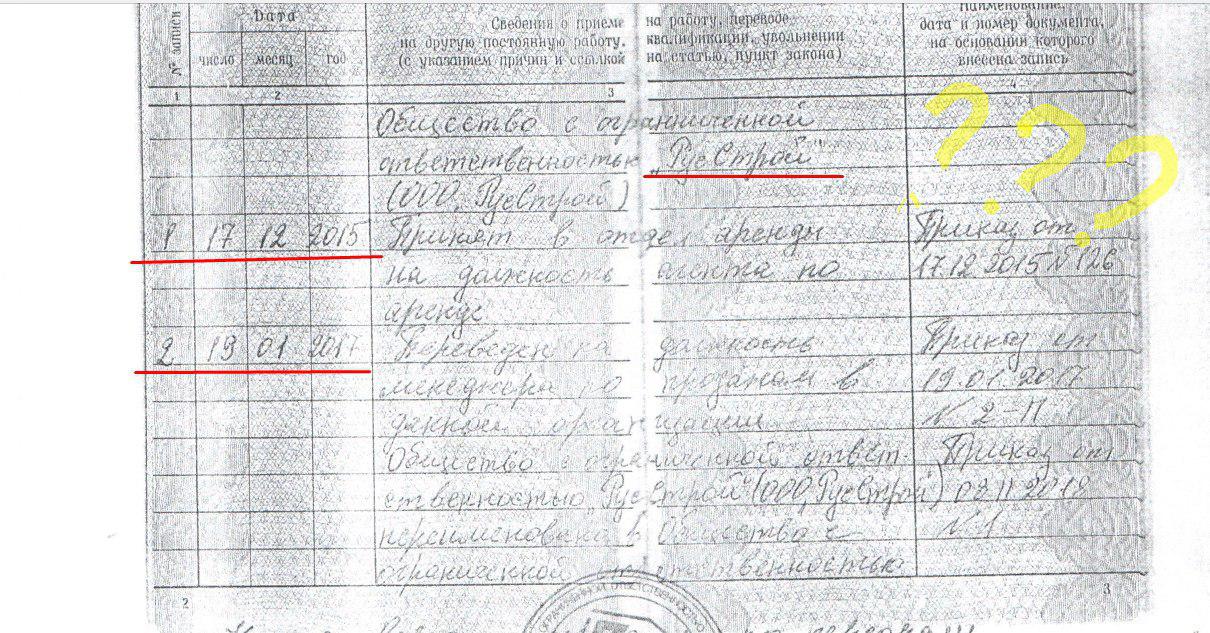 № записи
Дата
число месяц год
Сведения о приеме на работу, переводе
на другую постоянную работу, квалификации, увольнении
(с указанием причин и ссылкой на статью, пункт закона)
Наименование,
дата и номер документа,
на основании которого
внесена запись
1 2 3 4
Общество с ограниченной
ответственностью „РусСтрой"
(ООО „РусСтрой")
1 17 12 2015 Принят в отдел аренды Приказ от
на должность агента по 17.12.2015 № 126
аренде
2 19 01 2017 Переведен на должность Приказ от
менеджера по продажам в 19.01.2017
данной организации № 2-П
Общество с ограниченной ответ- Приказ от
ственностью „РусСтрой" (ООО „РусСтрой") 02.11.2018
переименовано в Общество с № 1
ограниченной ответственностью
2 3
???